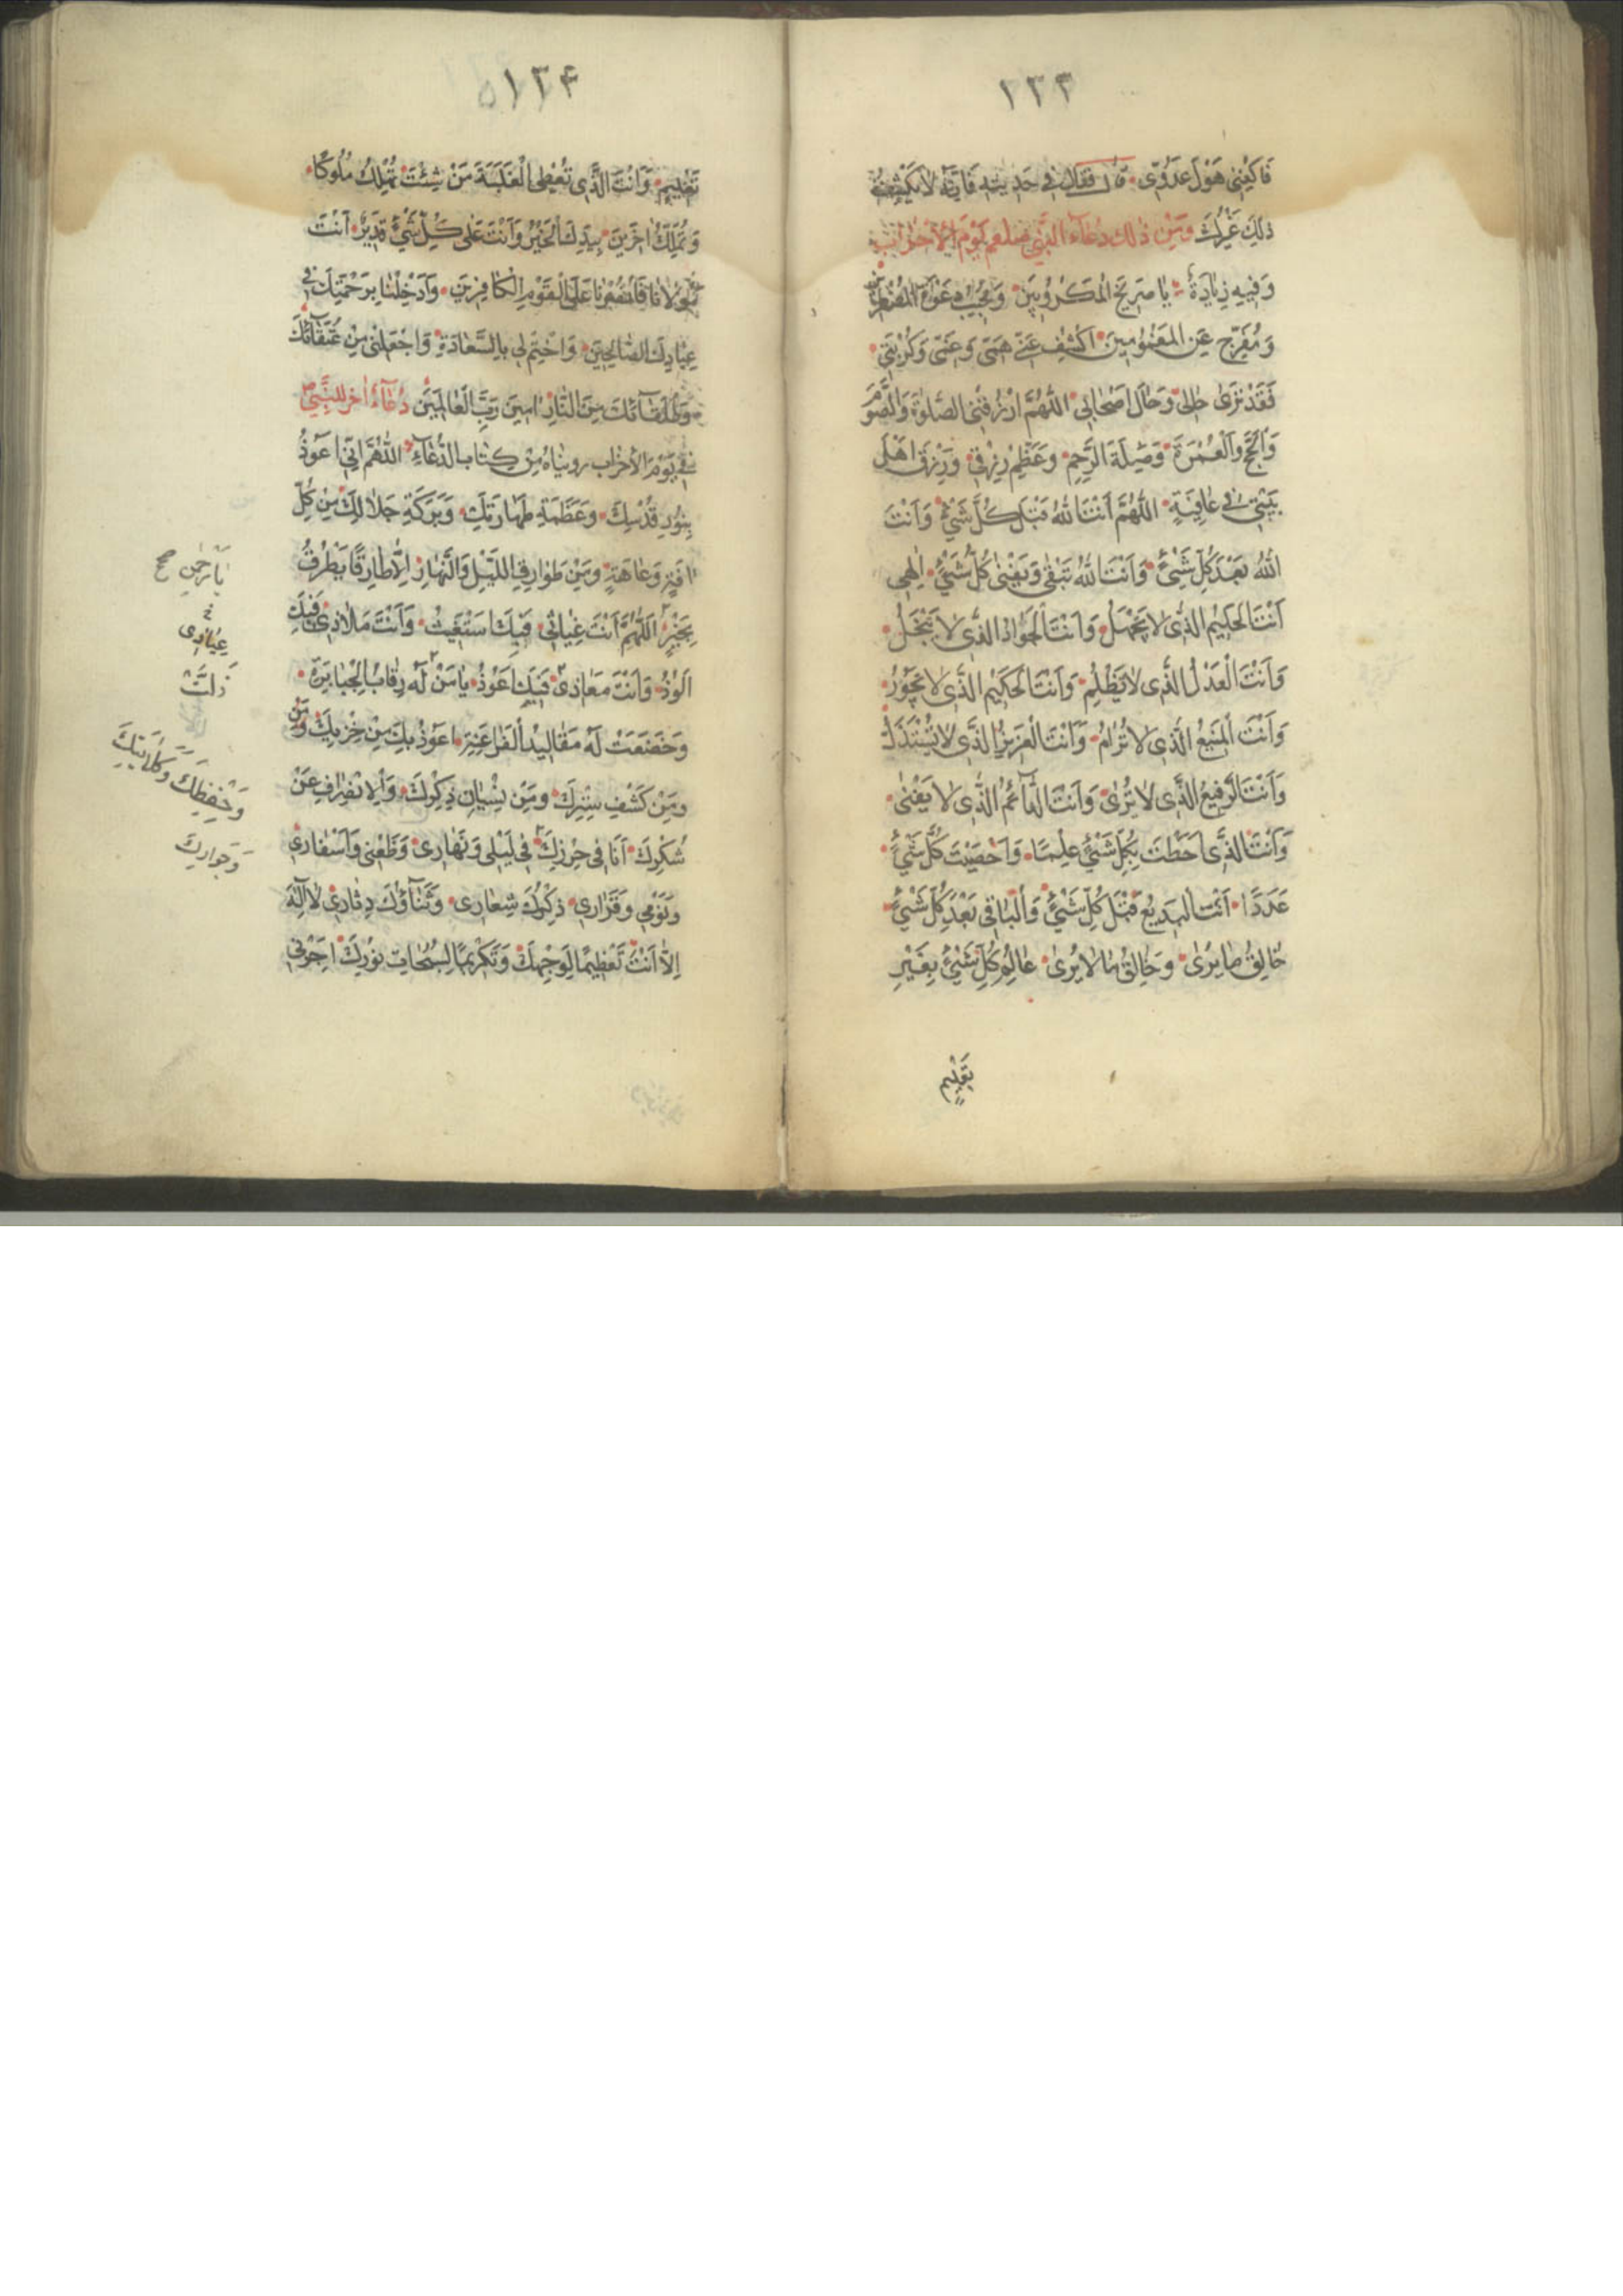 ١٣٣
فَاكْفِنِى هَوْلَ عَدُوِّى قال فقال فى حديثه فَاِنَّهُ لَا يَكْشِفُ
ذٰلِكَ غَيْرُكَ وَمِنْ ذٰلِكَ دُعَآءُ النَّبِىِّ صلعم يَوْمَ الْاَحْزَابِ
وَفِيهِ زِيَادَةٌ يَا صَرِيخَ الْمَكْرُوبِينَ وَمُجِيبَ دَعْوَةِ الْمُضْطَرِّينَ
وَمُفَرِّجَ عَنِ الْمَغْمُومِينَ اكْشِفْ عَنِّى هَمِّى وَغَمِّى وَكُرْبَتِى
فَقَدْ تَرَىٰ حَالِى وَحَالَ اَصْحَابِى اَللّٰهُمَّ ارْزُقْنِى الصَّلٰوةَ وَالصَّوْمَ
وَالْحَجَّ وَالْعُمْرَةَ وَصِلَةَ الرَّحِمِ وَعَظِّمْ رِزْقِى وَرِزْقَ اَهْلِ
بَيْتِى فِى عَافِيَةٍ اَللّٰهُمَّ اَنْتَ اللّٰهُ قَبْلَ كُلِّ شَىْءٍ وَاَنْتَ
اللّٰهُ بَعْدَ كُلِّ شَىْءٍ وَاَنْتَ اللّٰهُ تَبْقٰى وَيَفْنٰى كُلُّ شَىْءٍ اِلٰهِى
اَنْتَ الْحَلِيمُ الَّذِى لَا يَجْهَلُ وَاَنْتَ الْجَوَادُ الَّذِى لَا يَبْخَلُ
وَاَنْتَ الْعَدْلُ الَّذِى لَا يَظْلِمُ وَاَنْتَ الْحَكِيمُ الَّذِى لَا يَجُوْرُ
وَاَنْتَ الْمَنِيعُ الَّذِى لَا تُرَامُ وَاَنْتَ الْعَزِيزُ الَّذِى لَا تُسْتَذَلُّ
وَاَنْتَ الرَّفِيعُ الَّذِى لَا تُرٰى وَاَنْتَ الدَّآئِمُ الَّذِى لَا يَفْنٰى
وَاَنْتَ الَّذِى اَحَطْتَ بِكُلِّ شَىْءٍ عِلْمًا وَاَحْصَيْتَ كُلَّ شَىْءٍ
عَدَدًا اَنْتَ الْبَدِيعُ قَبْلَ كُلِّ شَىْءٍ وَالْبَاقِى بَعْدَ كُلِّ شَىْءٍ
خَالِقُ مَا يُرٰى وَخَالِقُ مَا لَا يُرٰى عَالِمُ كُلِّ شَىْءٍ بِغَيْرِ
تَعْلِيمٍ
١٣۴
تَعْلِيمٍ وَاَنْتَ الَّذِى تُعْطِى الْغَلَبَةَ مَنْ شِئْتَ تُهْلِكُ مُلُوكًا
وَتُمَلِّكُ اٰخَرِينَ بِيَدِكَ الْخَيْرُ وَاَنْتَ عَلٰى كُلِّ شَىْءٍ قَدِيرٌ اَنْتَ
مَوْلَانَا فَانْصُرْنَا عَلَى الْقَوْمِ الْكَافِرِينَ وَاَدْخِلْنَا بِرَحْمَتِكَ فِى
عِبَادِكَ الصَّالِحِينَ وَاخْتِمْ لِى بِالسَّعَادَةِ وَاجْعَلْنِى مِنْ عُتَقَآئِكَ
وَطُلَقَآئِكَ مِنَ النَّارِ اٰمِينَ رَبَّ الْعَالَمِينَ دُعَآءٌ اٰخَرُ لِلنَّبِىِّ ص
فِى يَوْمِ الْاَحْزَابِ رويناه مِنْ كِتَابِ الدُّعَآءِ اَللّٰهُمَّ اِنِّى اَعُوْذُ
بِنُوْرِ قُدْسِكَ وَعَظَمَةِ طَهَارَتِكَ وَبَرَكَةِ جَلَالِكَ مِنْ كُلِّ
اٰفَةٍ وَعَاهَةٍ وَمِنْ طَوَارِقِ اللَّيْلِ وَالنَّهَارِ اِلَّا طَارِقًا يَطْرُقُ
بِخَيْرٍ اَللّٰهُمَّ اَنْتَ غِيَاثِى فَبِكَ اَسْتَغِيثُ وَاَنْتَ مَلَاذِى فَبِكَ
اَلُوْذُ وَاَنْتَ مَعَاذِى فَبِكَ اَعُوْذُ يَا مَنْ لَهُ رِقَابُ الْجَبَابِرَةِ
وَخَضَعَتْ لَهُ مَقَالِيدُ الْفَرَاعِنَةِ اَعُوْذُ بِكَ مِنْ خِزْيِكَ وَمِنْ
وَمِنْ كَشْفِ سِتْرِكَ وَمِنْ نِسْيَانِ ذِكْرِكَ وَالْاِنْصِرَافِ عَنْ
شُكْرِكَ اَنَا فِى حِرْزِكَ فِى لَيْلِى وَنَهَارِى وَظَعْنِى وَاَسْفَارِى
وَنَوْمِى وَقَرَارِى ذِكْرُكَ شِعَارِى وَثَنَآؤُكَ دِثَارِى لَا اِلٰهَ
اِلَّا اَنْتَ تَعْظِيمًا لِوَجْهِكَ وَتَكْرِيمًا لِسُبُحَاتِ نُوْرِكَ اَجِرْنِى
يَا رَحْمٰنُ صح
عِيَاذِى
ذَلَّتْ
وَحِفْظِكَ وَكَلَائَتِكَ
وَجِوَارِكَ